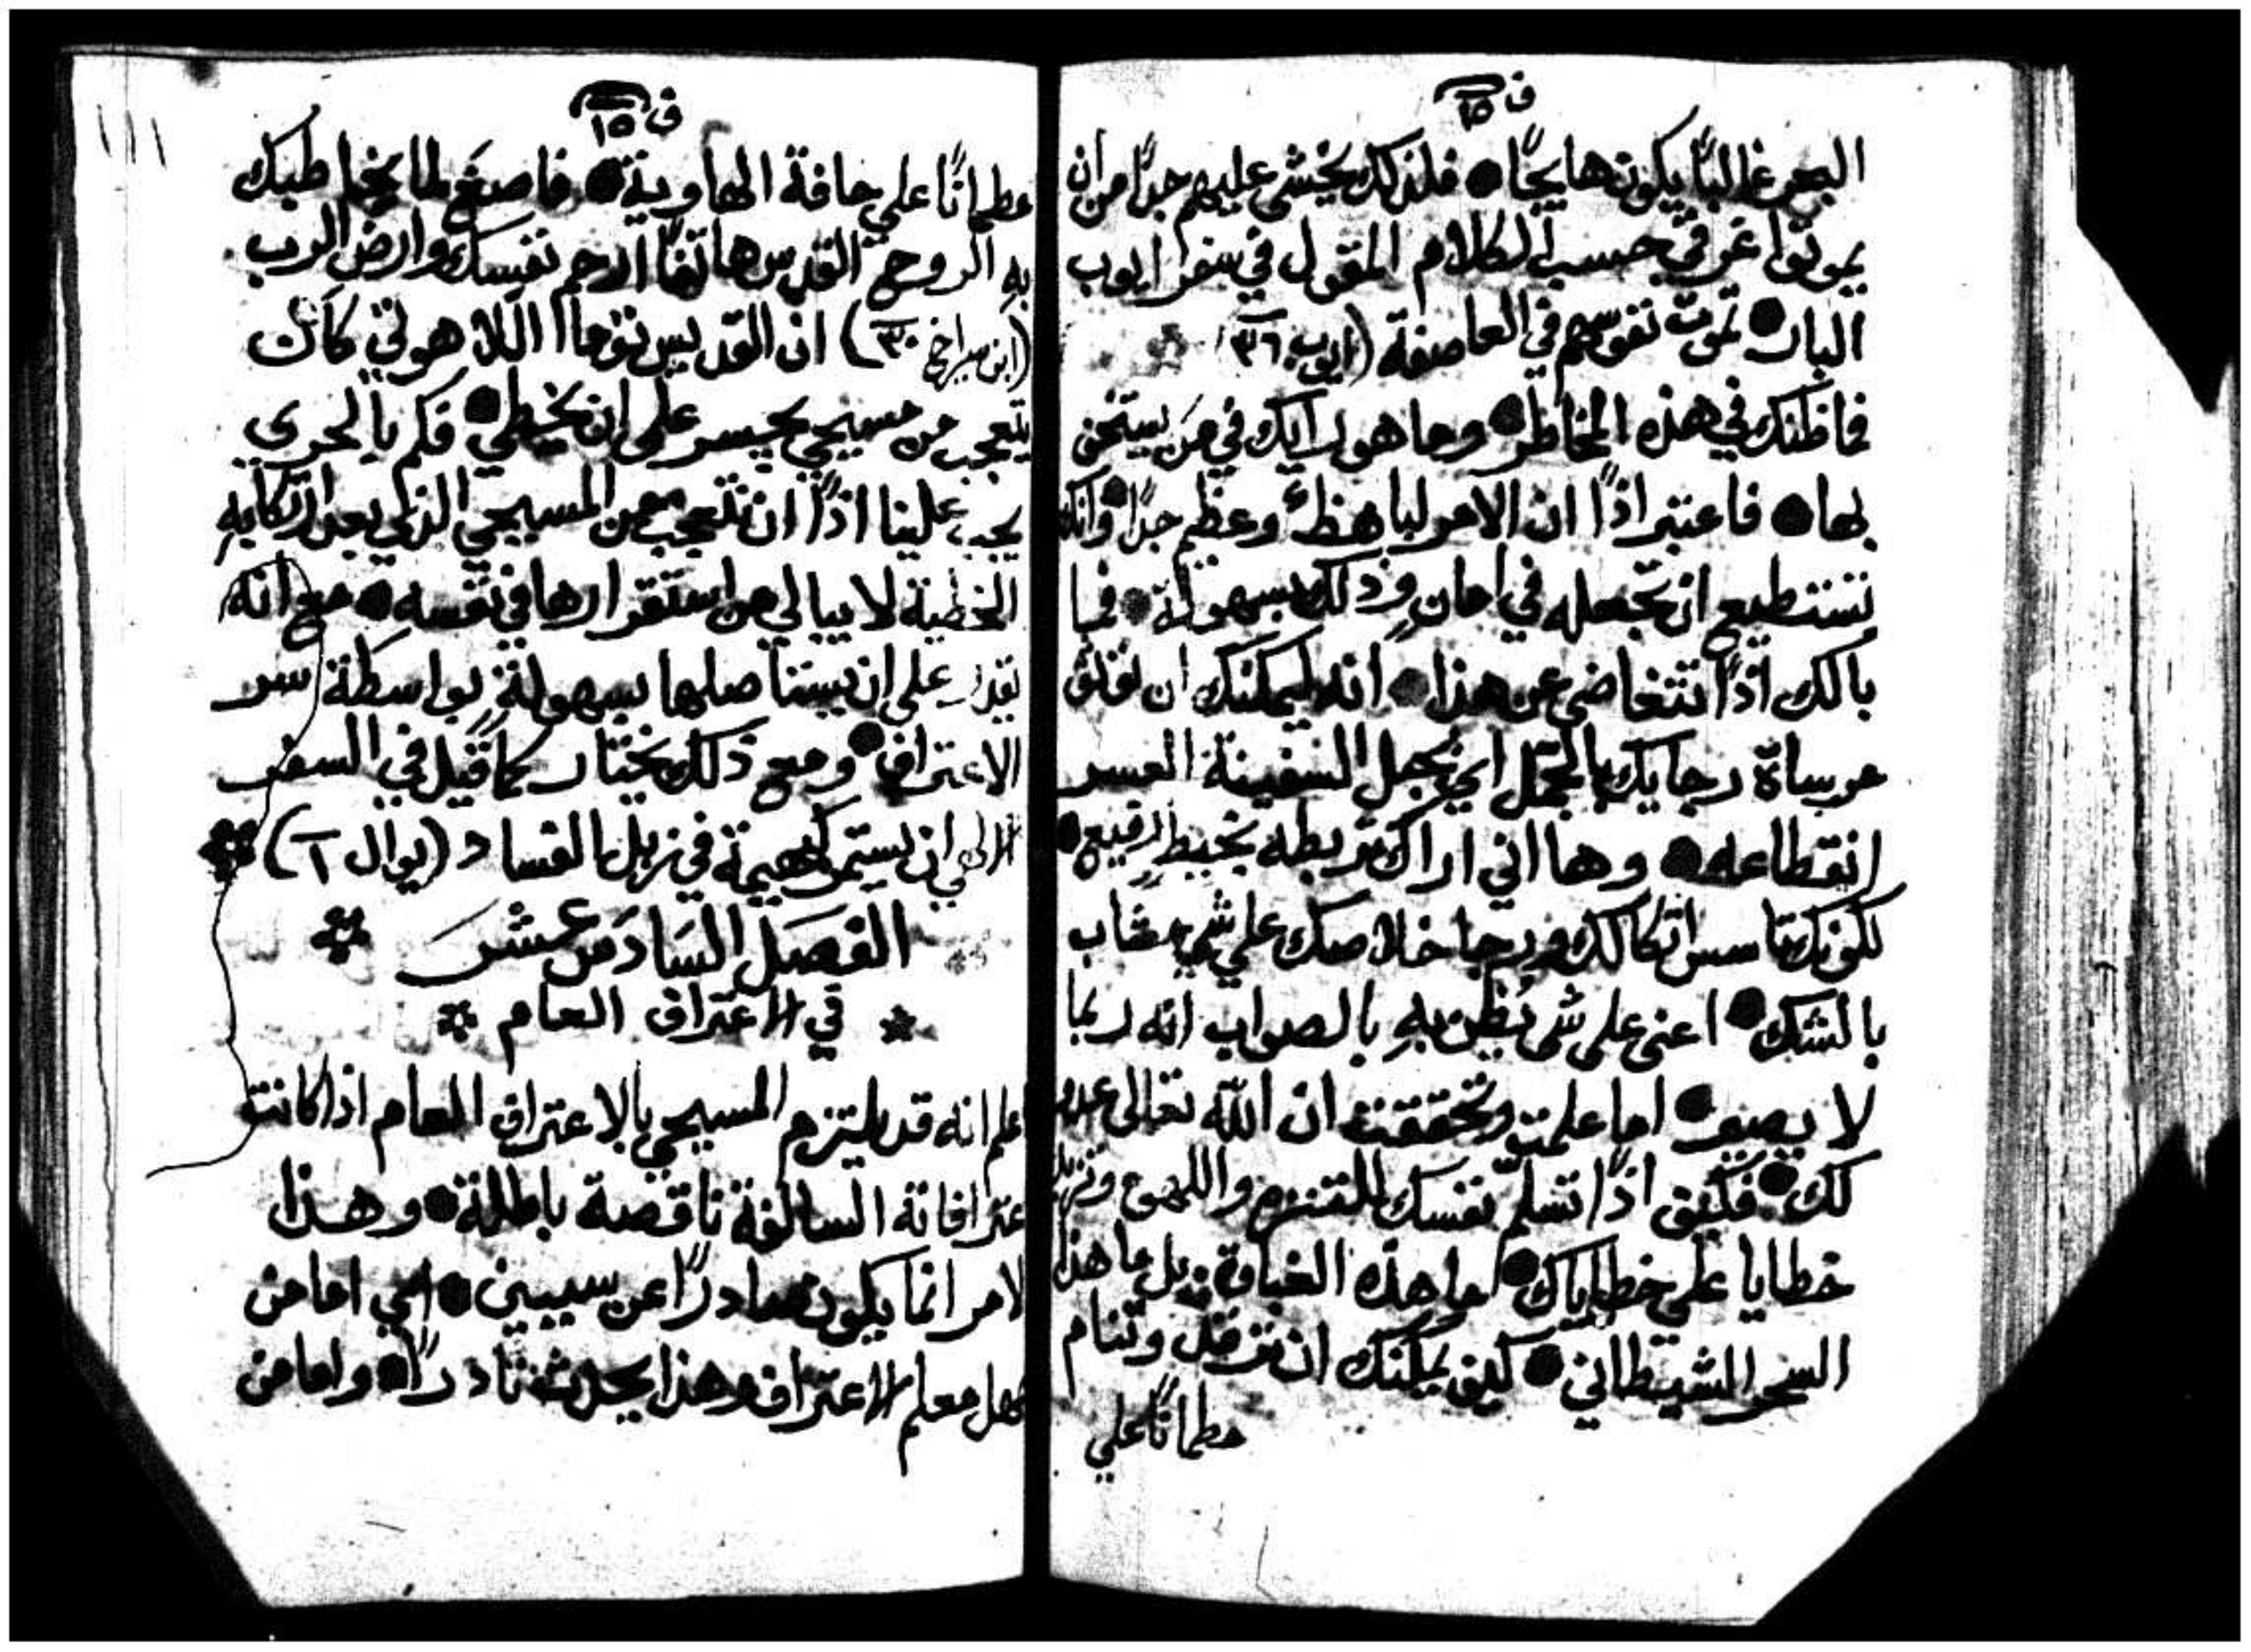 ف ١٥
البحر غالبًا يكون هايجًا فلذلك يخشي عليهم جدًا من ان
يموتوا غرقي حسب الكلام المقول في سفر ايوب
البار تموت نفوسهم في العاصفة (ايوب ٣٦)
فما ظنك في هذه المخاطر وما هو رايك في من يستخف
بها فاعتبر اذًا ان الامر لباهظ وعظيم جدًا وانك
تستطيع ان تجعله في امان وذلك بسهولة فما
بالك اذًا تتغاضي عن هذا انه ليمكنك ان توثق
مرساة رجايك بالجمل اي بحبل السفينة العسر
انقطاعه وها اني اراك تربطه بخيط رفيع
لكونك تاسس اتكالك ورجا خلاصك علي شي مشاب
بالشك اعني علي شي يُظن به بالصواب انه ربما
لا يصير اما علمت وتحققت ان الله تعالي عدو
لك فكيف اذًا تسلم نفسك للتنزه واللهو وتزيد
خطايا علي خطاياك ما هذه الغباوة بل ما هذا
السحر الشيطاني كيف يمكنك ان ترقد وتنام
مطمانًا علي
ف ١٥
مطمانًا علي حافة الهاوية فاصغ لما يخاطبك
به الروح القدس هاتفًا ارحم نفسك وارض الرب
(ابن سيراخ ٣٠) ان القديس توما اللاهوتي كان
يتعجب من مسيحي يجسر علي ان يخطي فكم بالحري
يجب علينا اذًا ان نتعجب من المسيحي الذي بعد ارتكابه
الخطية لا يبالي من استقرارها في نفسه مع انه
يقدر علي ان يستاصلها بسهولة بواسطة سر
الاعتراف ومع ذلك يختار كما قيل في السفر
الالهي ان يستمر كبهيمة في زبل الفساد (يوال ١)
الفصل السادس عشر
في الاعتراف العام
اعلم انه قد يلتزم المسيحي بالاعتراف العام اذا كانت
اعترافاته السالفة ناقصة باطلة وهذا
الامر انما يكون صادرًا عن سببين اي اما من
جهل معلم الاعتراف وهذا يحدث نادرًا واما من